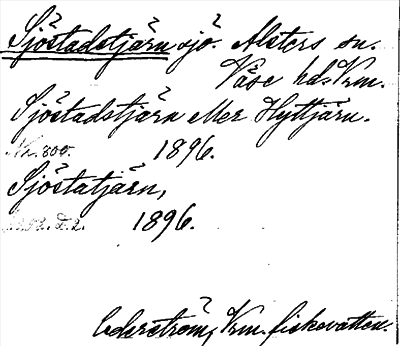 Sjöstadstjärn sjö. Alsters sn.
Väse hd. Vrm.
Sjöstadstjärn eller Hyttjärn.
Nr. 800. 1896.
Sjöstatjärn,
d. 2. 1896.
Cederström, Vrm. fiskevatten.